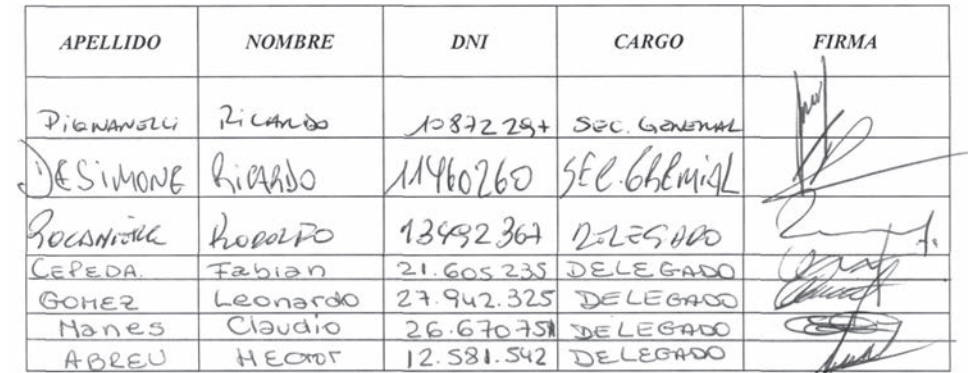 APELLIDO NOMBRE DNI CARGO FIRMA
PIGNANELLI RICARDO 10872297 SEC. GENERAL
DESIMONE RICARDO 11460260 SEC. GREMIAL
RODOLFO 13492367 DELEGADO
CEPEDA. Fabian 21.605.235 DELEGADO
GOMEZ Leonardo 27.942.325 DELEGADO
Manes Claudio 26.670751 DELEGADO
ABREU HECTOR 12.581.542 DELEGADO